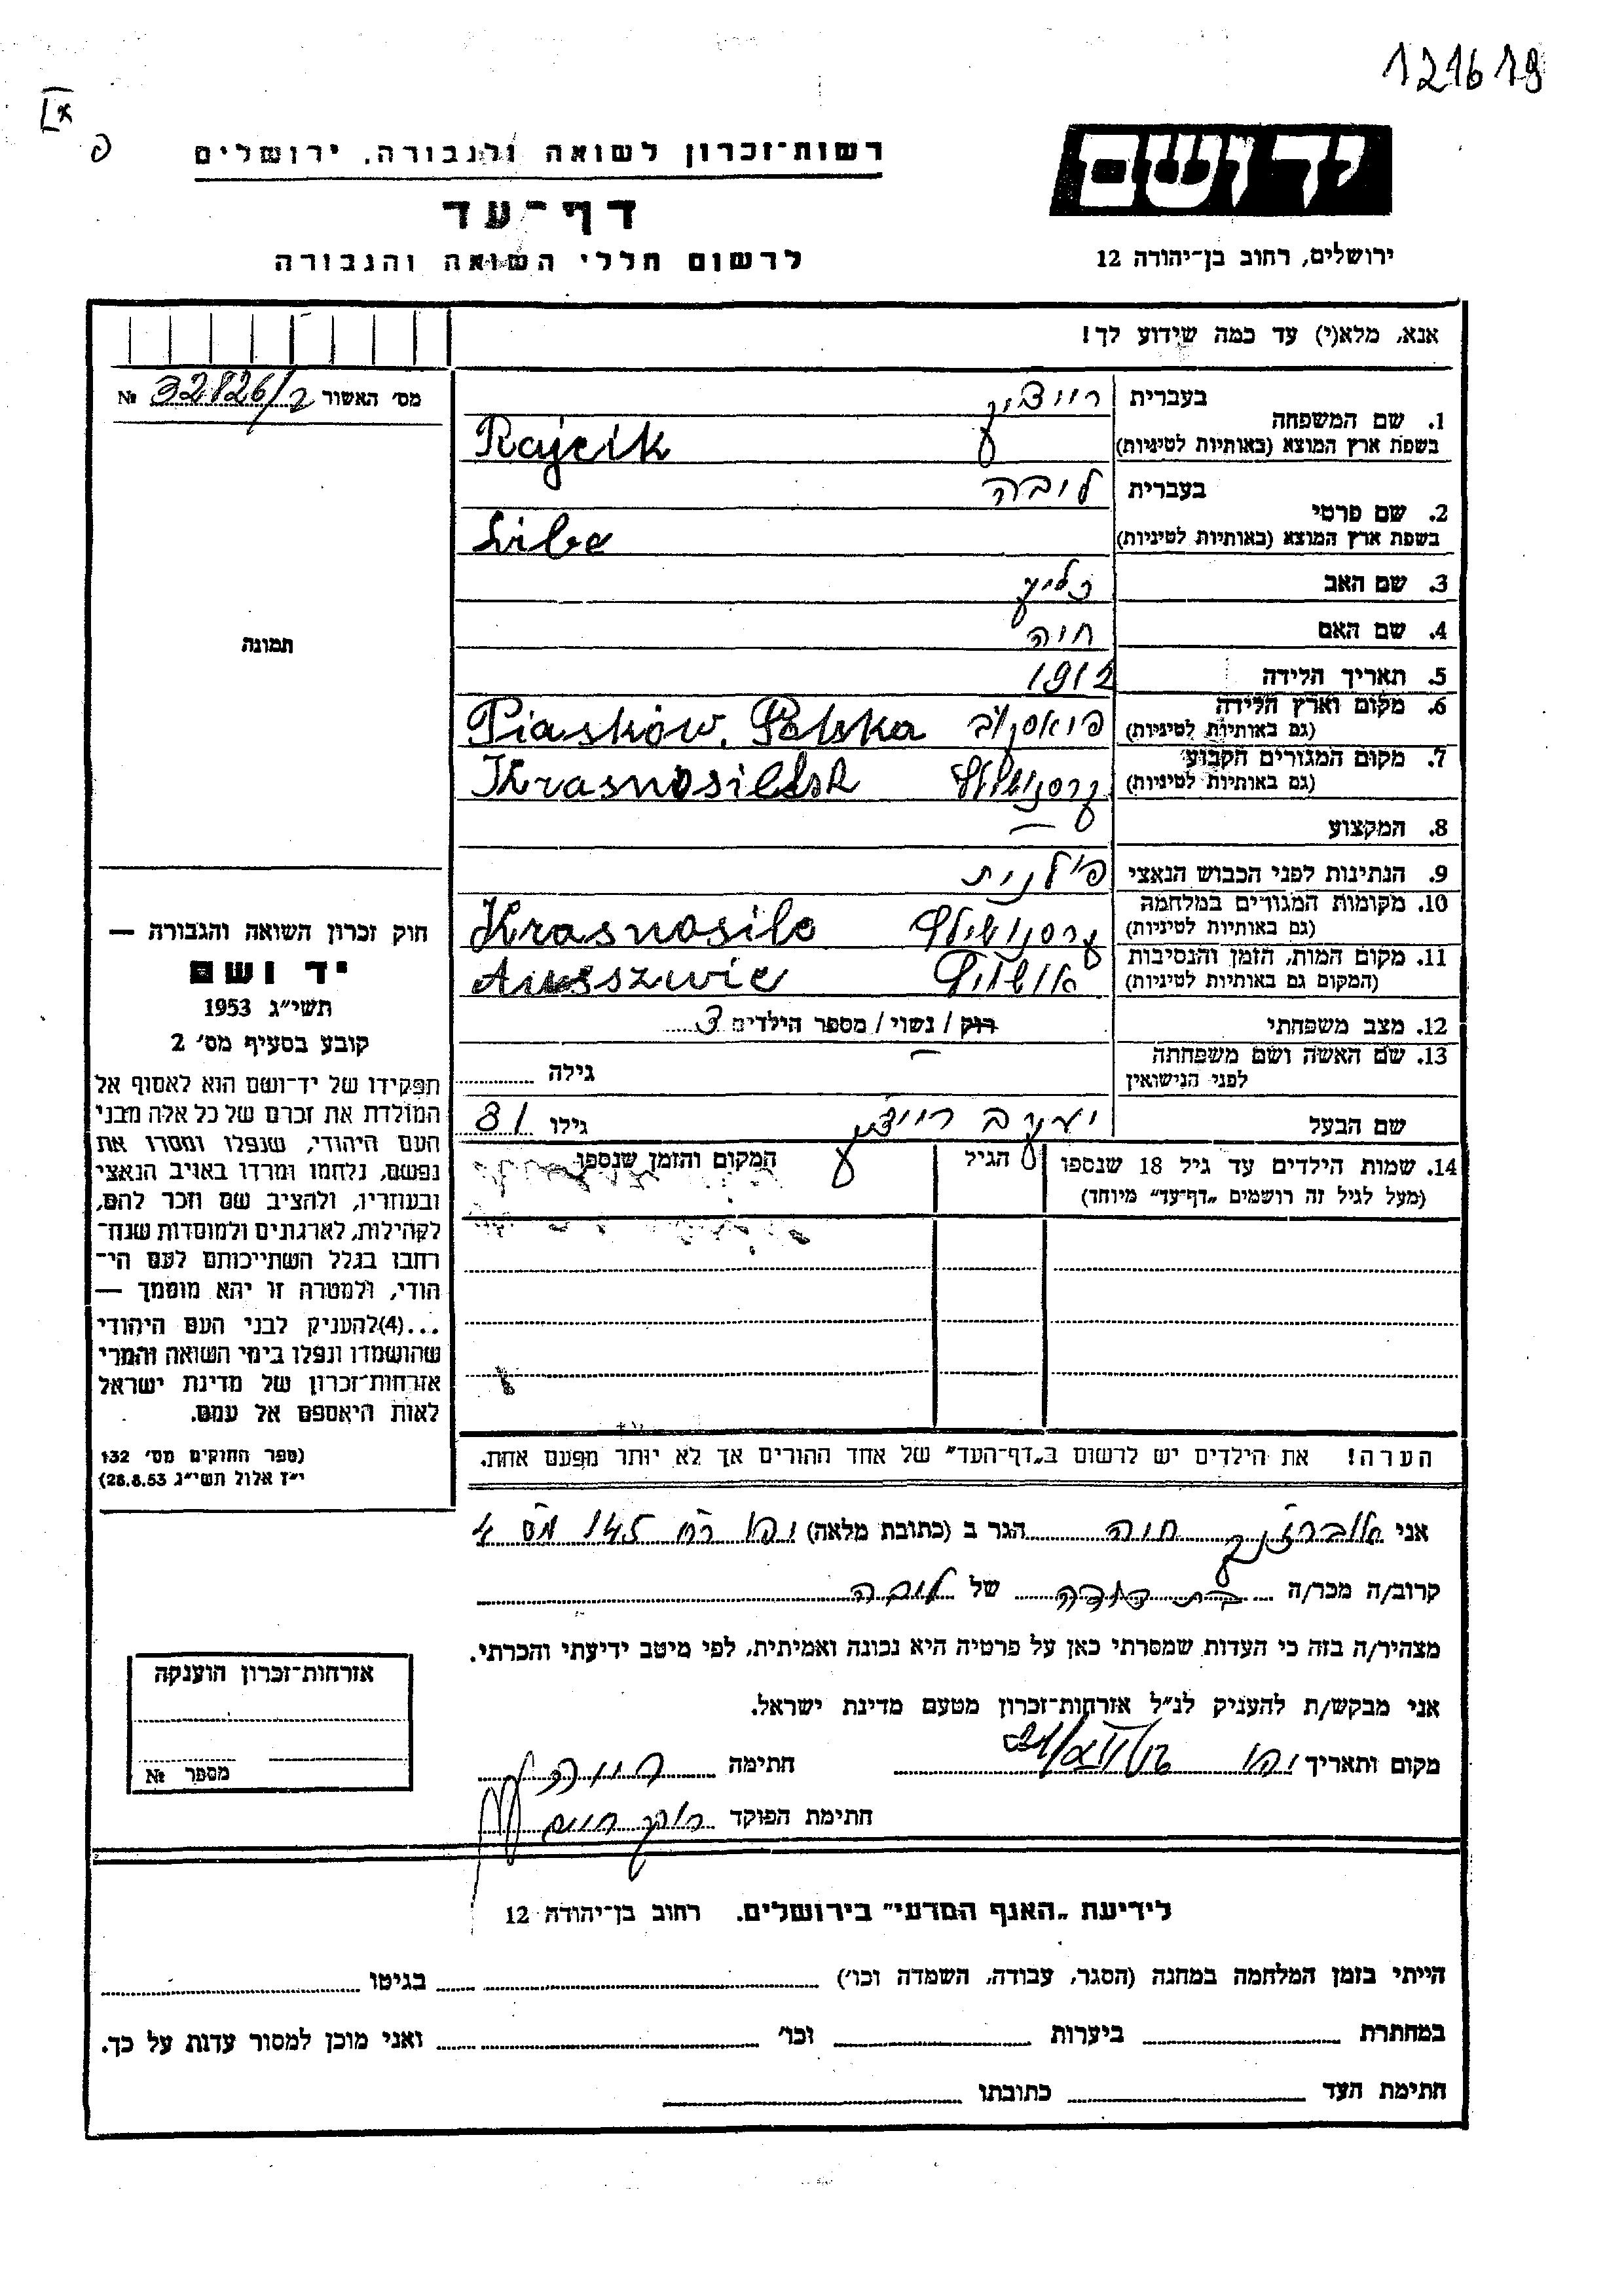 121619
רשות-זכרון לשואה ולגבורה, ירושלים
דף-עד
לרשום חללי השואה והגבורה
ידושם
ירושלים, רחוב בן-יהודה 12
אנא, מלא(י) עד כמה שידוע לך!
מס׳ האשור 32826/2 №
תמונה
חוק זכרון השואה והגבורה —
יד ושם
תשי״ג 1953
קובע בסעיף מס׳ 2
תפקידו של יד-ושם הוא לאסוף אל
המולדת את זכרם של כל אלה מבני
העם היהודי, שנפלו ומסרו את
נפשם, נלחמו ומרדו באויב הנאצי
ובעוזריו, ולהציב שם וזכר להם,
לקהילות, לארגונים ולמוסדות שנח-
רבו בגלל השתייכותם לעם הי-
הודי, ולמטרה זו יהא מוסמך —
...(4)להעניק לבני העם היהודי
שהושמדו ונפלו בימי השואה והמרי
אזרחות-זכרון של מדינת ישראל
לאות היאספם אל עמם.
(ספר החוקים מס׳ 132
י״ז אלול תשי״ג 28.8.53)
1. שם המשפחה
בעברית
בשפת ארץ המוצא (באותיות לטיניות) Rajcik
2. שם פרטי
בעברית ליבה
בשפת ארץ המוצא (באותיות לטיניות) Libe
3. שם האב
4. שם האם חיה
5. תאריך הלידה 1912
6. מקום וארץ הלידה
(גם באותיות לטיניות) Piasków. Polska
7. מקום המגורים הקבוע
(גם באותיות לטיניות)
8. המקצוע —
9. הנתינות לפני הכבוש הנאצי פולנית
10. מקומות המגורים במלחמה
(גם באותיות לטיניות) Krasnosile
11. מקום המות, הזמן והנסיבות
(המקום גם באותיות לטיניות)
12. מצב משפחתי רוק / נשוי / מספר הילדים 3
13. שם האשה ושם משפחתה
לפני הנישואין — גילה
שם הבעל יעקב גילו 31
14. שמות הילדים עד גיל 18 שנספו הגיל המקום והזמן שנספו
(מעל לגיל זה רושמים „דף-עד״ מיוחד)
הערה! את הילדים יש לרשום ב„דף-העד״ של אחד ההורים אך לא יותר מפעם אחת.
אני חיה הגר ב (כתובת מלאה) 145 מס 4
קרוב/ה מכר/ה בת דודה של ליבה
מצהיר/ה בזה כי העדות שמסרתי כאן על פרטיה היא נכונה ואמיתית, לפי מיטב ידיעתי והכרתי.
אני מבקש/ת להעניק לנ״ל אזרחות-זכרון מטעם מדינת ישראל.
מקום ותאריך חתימה
חתימת הפוקד
אזרחות-זכרון הוענקה
מספר №
לידיעת „האגף המדעי״ בירושלים. רחוב בן-יהודה 12
הייתי בזמן המלחמה במחנה (הסגר, עבודה, השמדה וכו׳) בגיטו
במחתרת ביערות וכו׳ ואני מוכן למסור עדות על כך.
חתימת העד כתובתו